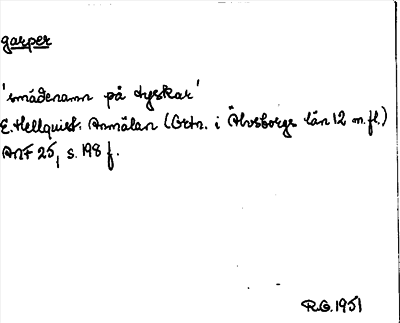 garper
'smädenamn på tyskar'
E. Hellquist. Anmälan (Ortn. i Älvsborgs län 12 m.fl.)
ANF 25, s. 198 f.
R.G. 1951